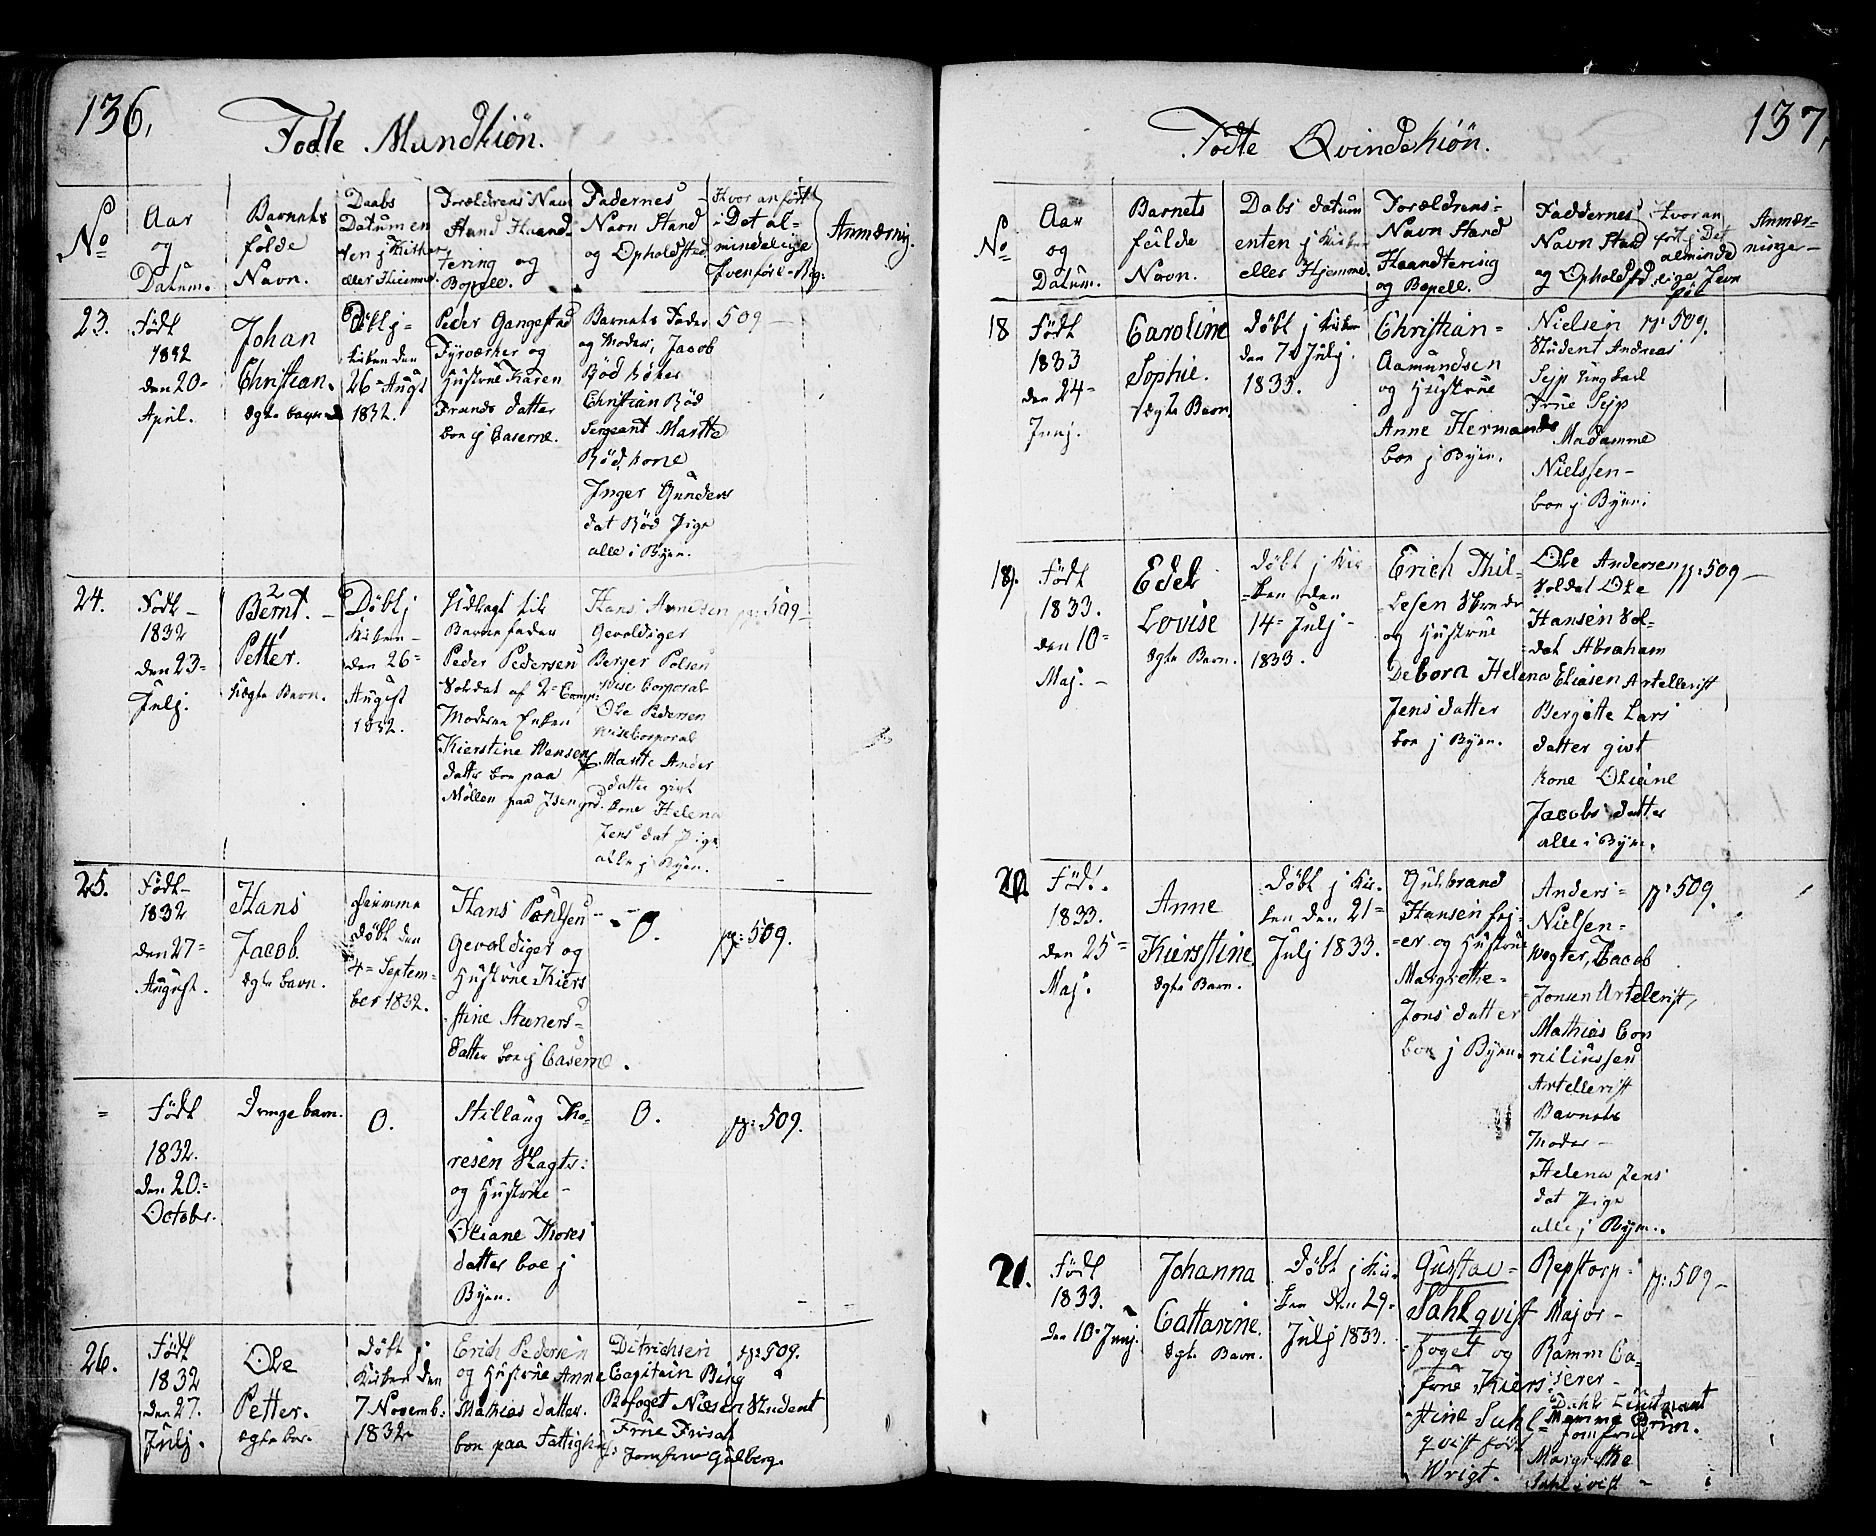 136.
Fødte Mandkiøn.
No
Aar
og
Datum.
Barnets
fulde
Navn.
Daabs
Datum en
ten j Kirken
eller Hiemme.
Forældrens Navn
Stand Haand-
tering og
Bopæl.
Fadernes
Navn Stand
og Opholdsted
Hvor anført
i Det al-
mindelige
Jvenførl-Reg.
Anmærning.
23.
Født
1832
den 20=
April.
Johan
Christian.
Ægte barn
Døbt j=
kirken den
26= Augst
1832.
Peder Gangestad
Fyrværker og
Hustrue Karen
Frands datter
boe j Caserne.
Barnets Fader
og Moder, Jacob
Rød
Christian Rød
Sergeant Marthe
Rød, kone
Inger Gunders
dat Rød Pige
alle i Byen.
509 —
24.
Født —
1832
den 23=
Julj.
2
Bernt
1
Petter.
Uægte Barn.
Døbt j
kirken —
den 26=
August
1832.
Udlagt til
Barnefader
Peder Pedersen
Soldat af 2= Comp:
Moderen Enken
Kierstine Hansen
datter boe paa
Møllen paa
Hans Arnesen
Gevaldiger
Berger Polsen
Vise Corporal
Ole Pedersen
Visecorporal
Marthe Anders
datter givt
kone Helena
Jens dat Pige
alle j Byen.
pg: 509 —
25.
Født —
1832
den 27=
August.
Hans
Jacob.
Ægte barn.
Hiemme
døbt den
4= Septem-
ber 1832.
Hans Poulsen
Gevaldiger og
Hustrue Kiers
tine Steners=
datter boe j Caserne.
0.
pg: 509.
=
Født
1832.
den 20.=
Octobr.
Drengebarn.
0.
Stillaug Tho-
resen Slagts:
og Hustrue —
Oliane Thores
datter boe j
Byen.
0.
pg: 509.
26.
Født
1832
den 27.
Julj.
Ole
Petter.
ægte bar.
Døbt j
Kirken den
7 Novemb:
1832
Erich Pedersen
og Hustrue Anne
Mathias datter.
boe paa Fattighus
Ditrichsen
Capitain Bing
Bofoget Nielsen Student
Frue Frisak
Jomfrue Gulberg.
pg: 509.
137.
Fødte Qvindekiøn.
No
Aar
og
Datum.
Barnets
fulde
Navn.
Dabs datum
enten j kirken
eller Hjemme.
Forældrens=
Navn Stand
Haandtering
og Bopell.
Faddernes
Navn Stand
og Opholdsted
hvor an
ført j Det
alminde
lige Jevn
før
Anmær-
ninge—
18
Født
1833
den 24=
Junj.
Caroline
Sophie.
Ægte Barn
Døbt j kirken
den 7d Julj.
1833.
Christian=
Aamundsen
og Hustrue
Anne Hermands
boe j Byen.
Nielsen
Student Andreas
Sejp
Frue Sejp
Madamme
Nielssen —
boe j Byen.
pg: 509.
19.
Født
1833.
den 10=
Maj. —
Edel
Lovise
Ægte Barn.
Døbt j kir
=ken den
14= Julj =
1833.
Erich Thil=
lesen
og Hustrue
Debora Helena
Jens datter
boe j Byen.
Ole Andersen
Soldat Ole
Hansen Sol=
dat Abraham
Eliasen Artellerist
Bergitte Lars
datter givt
kone Oleane
Jacobs datter
alle i Byen.
pg: 509 —
20.
Født.
1833.
den 25=
Maj.
Anne
Kiersttine
Ægte Barn.
Døbt j kir-
ken den 21=
Julj 1833.
Gulbrand
Hansen foj-
er og Hustrue
Margrethe=
Jons datter
boe j Byen.
Anders=
Nielsen=
Vægter, Jacob
Jonsen Artelerist,
Mathias Cor
niliussen
Artellerist
Barnets
Moder —
Helena Jens
dat Pige
alle j Byen.
pg: 509.
21.
Født
1833.
den 10= Junj.
Johanna
Cattarine.
Ægte Barn.
Døbt j kir-
ken den 29=
Julj 1833.
Gustav=
Sahlqvist
foget og
frue Kiers-
tine Sahl=
qvist født
Wrigt.
Repstorp
Major —
Ramm Ca-
serer —
Dahl Lieutnant
Mamme Brun.
Jomfrue
Margrethe
Sahlqvist —
pg: 509 —